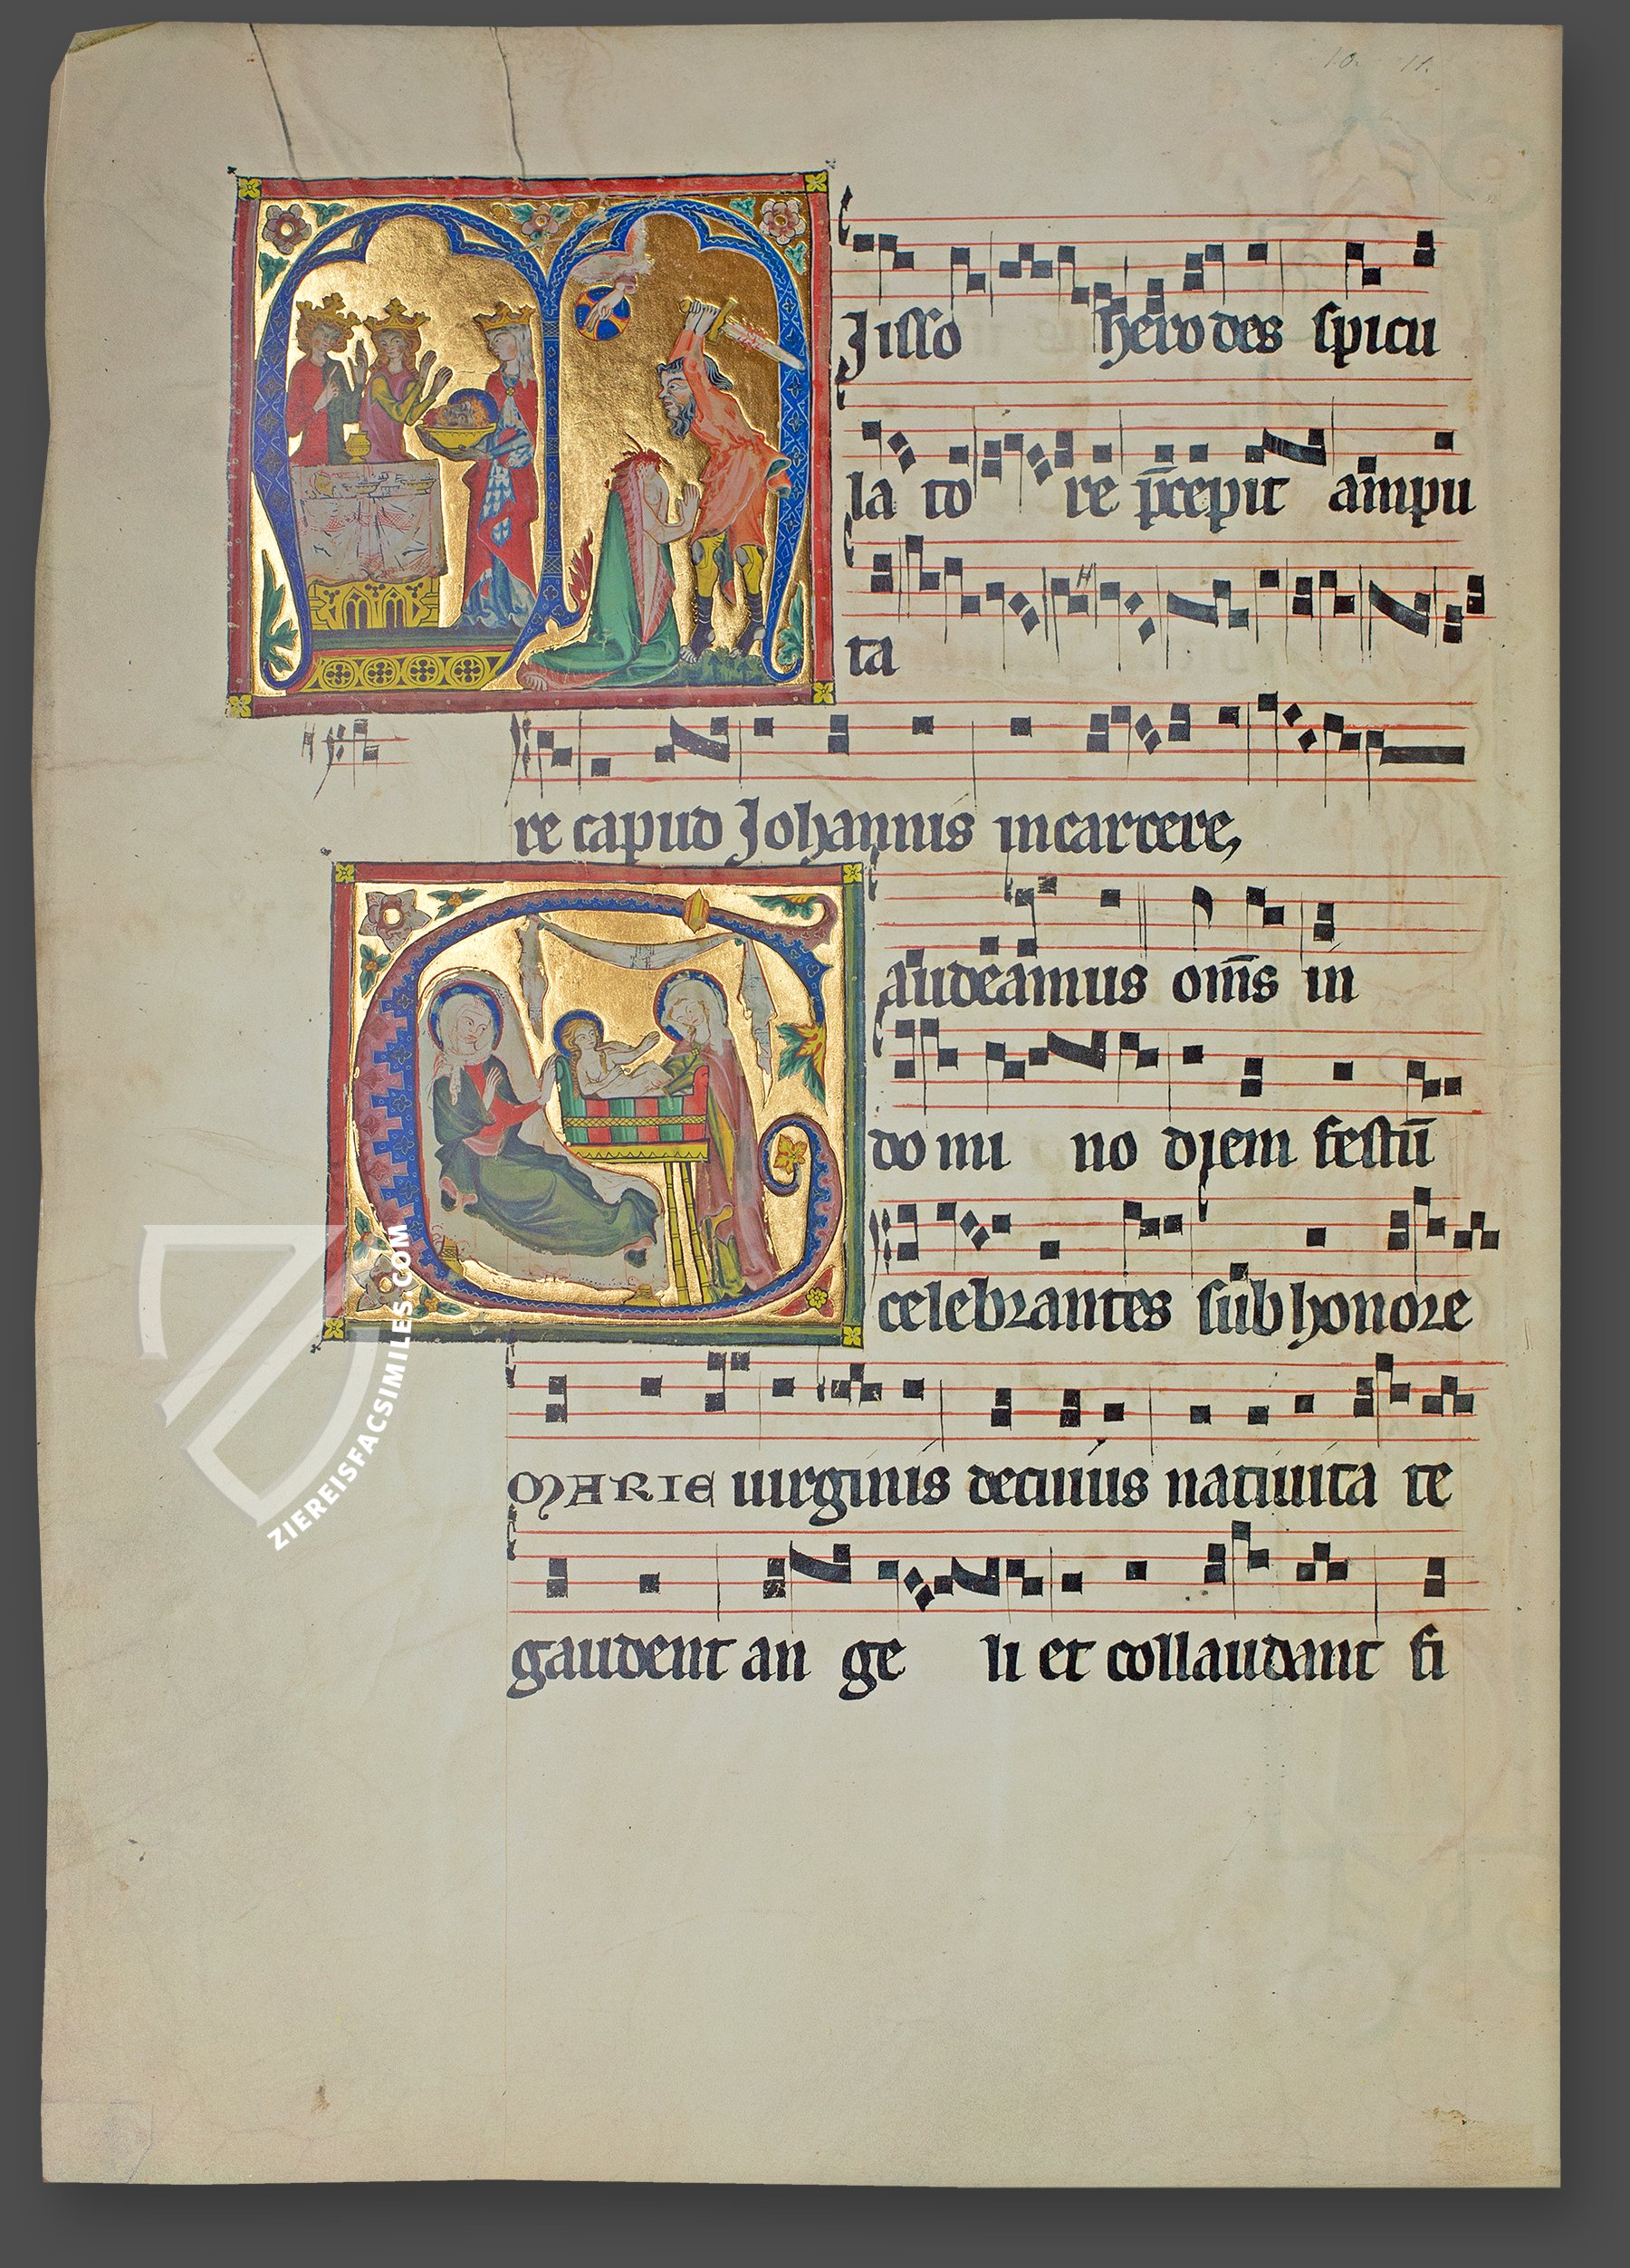 10. 11.
Misso herodes spicu
la to re p̄cepit ampu
ta
re capud Johannis in carcere,
Gaudeamus om̄s in
do mi no diem festū
celebrantes sub honore
MARIE uirginis de cuius natiuita te
gaudent an ge li et collaudant fi
ZIEREISFACSIMILES.COM